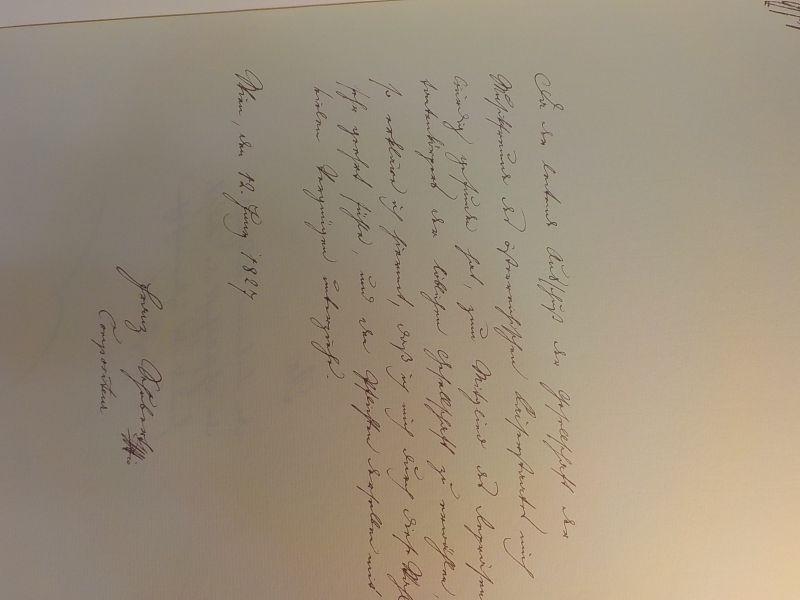 Da der leitende Ausschuß der Gesellschaft der
Musikfreunde des österreichischen Kaiserstaates mich
würdig gefunden hat, zum Mitglied des Repräsen
tantenkörpers der löblichen Gesellschaft zu erwählen,
so erkläre ich hiermit, daß ich mich durch diese Wahl
sehr geehrt fühle, und den Pflichten desselben mit
vielem Vergnügen unterziehe.
Wien, den 12. Juny 1827
Franz Schubert
Compositeur